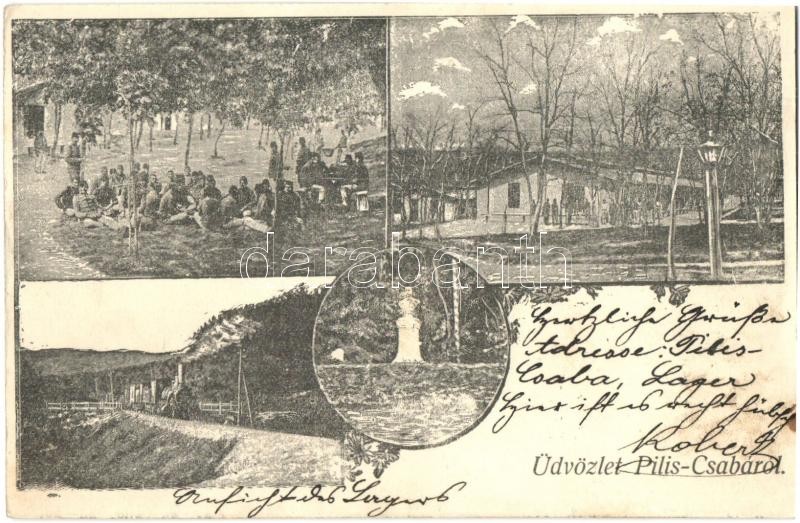 darabanth
Hertzliche Grüße
Adresse: Pilis-
Csaba, Lager
Hier ist es recht hübsch
Robert
Üdvözlet Pilis-Csabárol.
Ansicht des Lagers